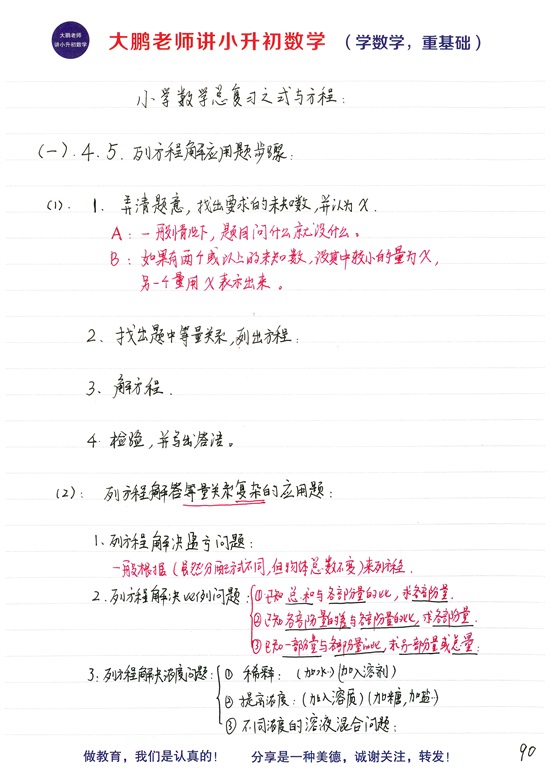 大鹏老师
讲小升初数学
大鹏老师讲小升初数学 （学数学，重基础）
小学数学总复习之式与方程：
(一).4.5.列方程解应用题步骤：
(1).1. 弄清题意，找出要求的未知数，并设为X.
A：一般情况下，题目问什么就设什么。
B：如果有两个或以上的未知数，设其中较小的量为X，
另一个量用X表示出来。
2、找出题中等量关系，列出方程：
3、解方程.
4.检验，并写出答语。
(2)：列方程解答等量关系复杂的应用题：
1、列方程解决盈亏问题：
一般根据（虽然分配方式不同，但物体总数不变）来列方程.
2.列方程解决比例问题：①已知总和与各部分量的比，求各部分量.
②已知各部分量的差与各部分量的比，求各部分量.
③已知一部分量与各部分量的比，求另一部分量或总量：
3：列方程解决浓度问题：① 稀释：（加水）（加入溶剂）
② 提高浓度：（加入溶质）（加糖，加盐）
③ 不同浓度的溶液混合问题：
做教育，我们是认真的！ 分享是一种美德，诚谢关注，转发！ 90